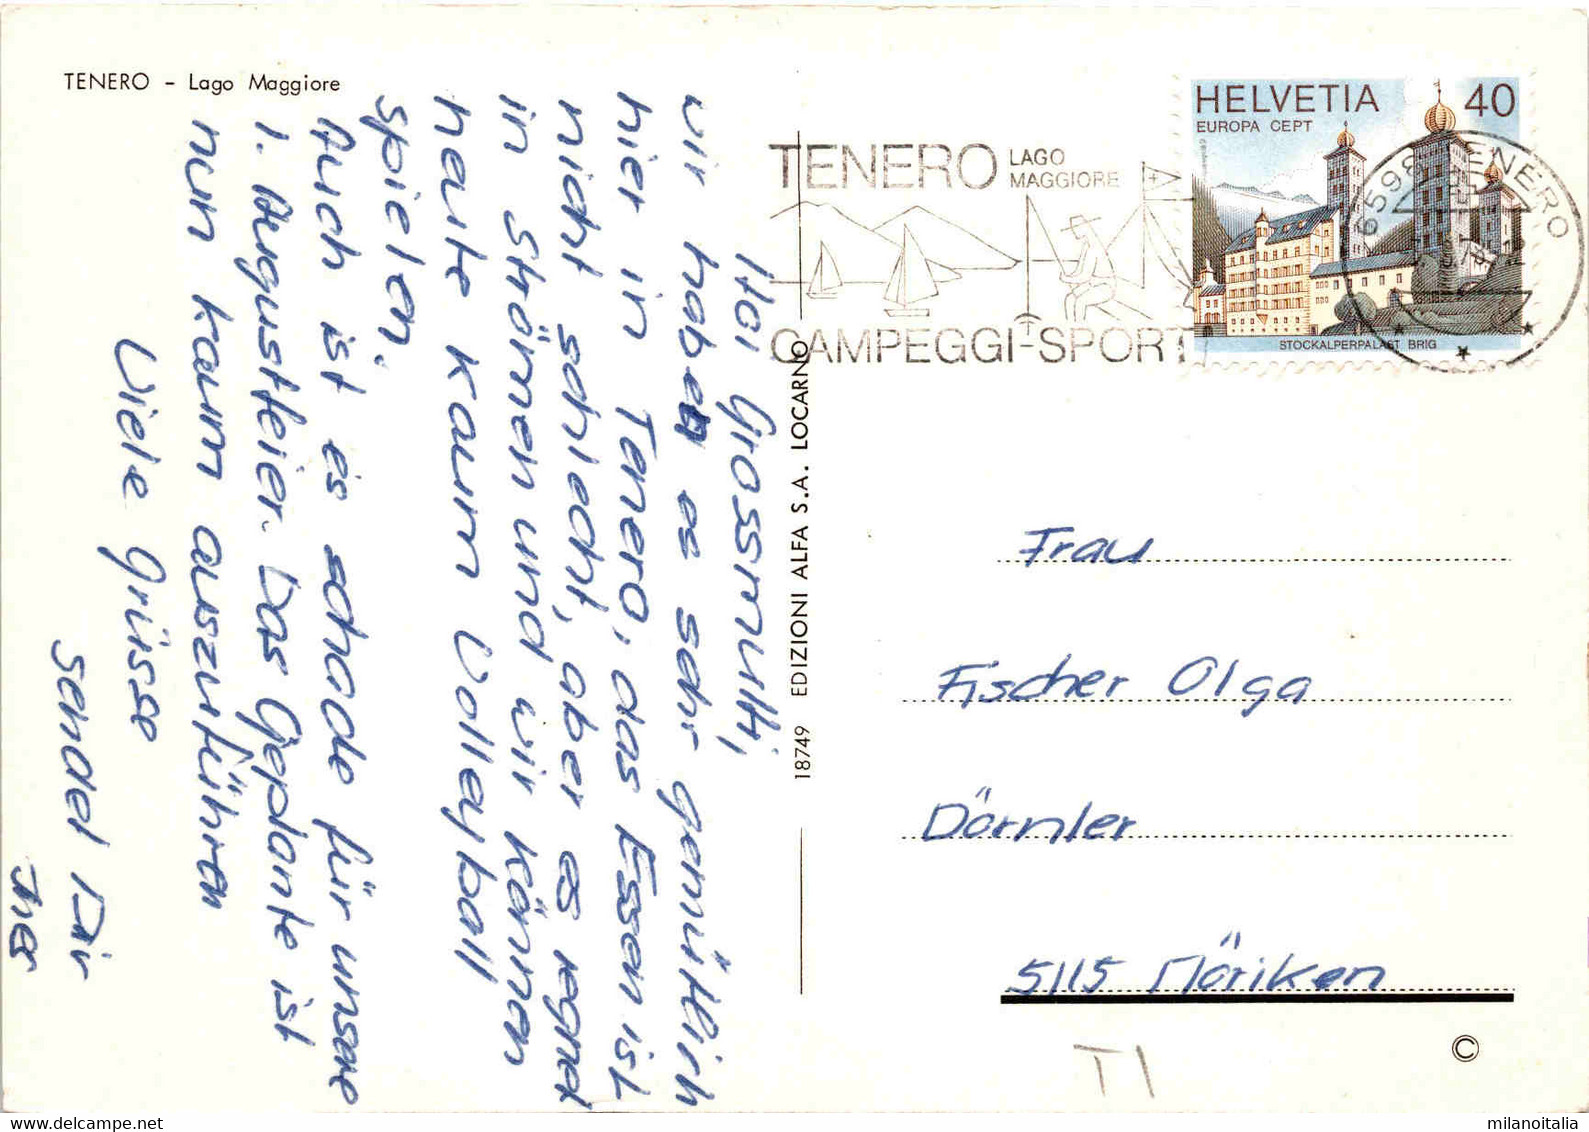 TENERO – Lago Maggiore
Hoi Grossmutti,
wir haben es sehr gemütlich
hier in Tenero, das Essen ist
nicht schlecht, aber es regnet
in Strömen und wir können
heute kaum Volleyball
spielen.
Auch ist es schade für unsere
1. Augustfeier. Das Geplante ist
nun kaum auszuführen
Viele Grüsse
sendet Dir
Ines
18749 EDIZIONI ALFA S.A. LOCARNO
TENERO LAGO
MAGGIORE
CAMPEGGI-SPORT
HELVETIA 40
EUROPA CEPT
STOCKALPERPALAST BRIG
6598 TENERO
Frau
Fischer Olga
Dörnler
5115 Möriken
©
TI
milanoitalia